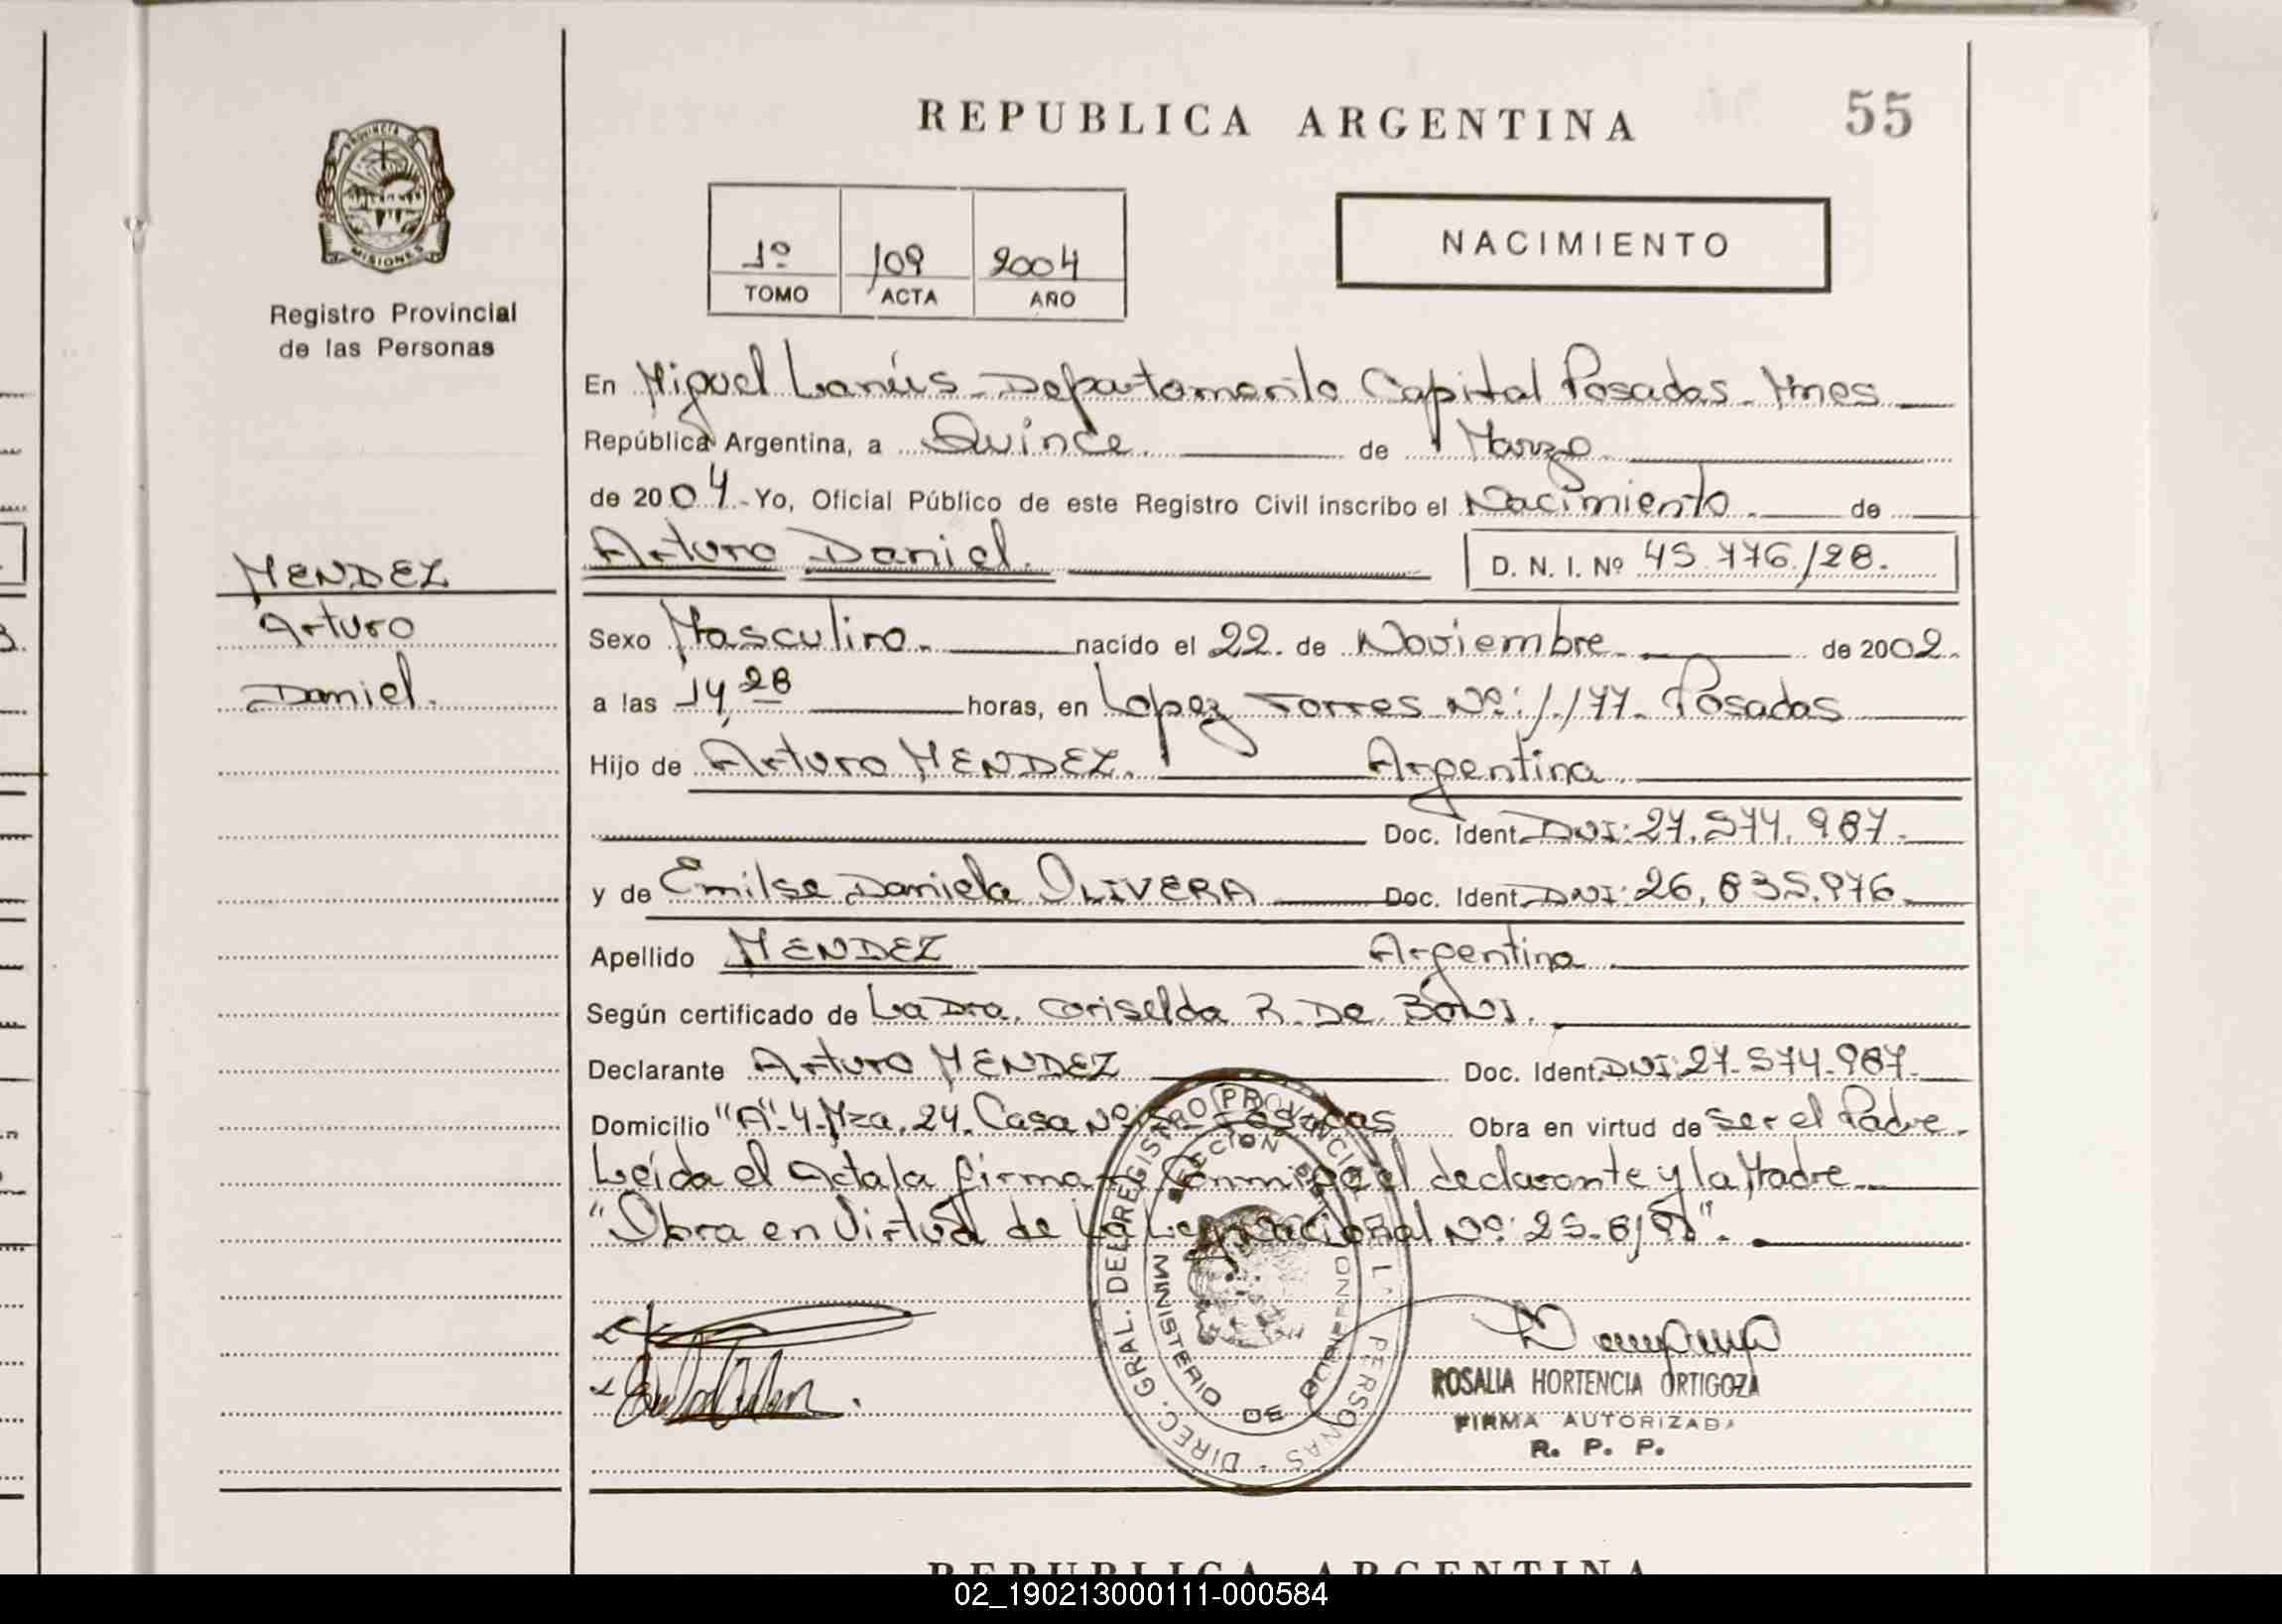 REPUBLICA ARGENTINA
55
PROVINCIA DE
MISIONES
Registro Provincial
de las Personas
1º 109 2004
TOMO ACTA AÑO
NACIMIENTO
En Miguel Lanús - Departamento Capital Posadas - Mnes
República Argentina, a Quince de Marzo
de 2004 - Yo, Oficial Público de este Registro Civil inscribo el Nacimiento - de
Arturo Daniel. D. N. I. Nº 45.776.128.
MENDEZ
Arturo
Daniel.
Sexo Masculino - nacido el 22. de Noviembre - de 2002.
a las 14,28 horas, en Lopez Torres Nº: 1.177 - Posadas
Hijo de Arturo MENDEZ. Argentina
Doc. Ident. DNI: 27.574.987 -
y de Emilse Daniela OLIVERA Doc. Ident. DNI: 26.835.976.
Apellido MENDEZ Argentina.
Según certificado de La Dra. Griselda R. De
Declarante Arturo MENDEZ Doc. Ident. DNI: 27.574.987.
Domicilio "A"-4-Mza. 24. Casa Nº: Posadas Obra en virtud de ser el Padre.
Leída el Acta la firman Conmigo el declarante y la Madre
"Obra en Virtud de la Ley Nacional Nº: 25.819".
DIREC. GRAL. DEL REGISTRO PROVINCIAL PERSONAS
MINISTERIO DE GOBIERNO
ROSALIA HORTENCIA ORTIGOZA
FIRMA AUTORIZADA
R. P. P.
REPUBLICA ARGENTINA
02_190213000111-000584